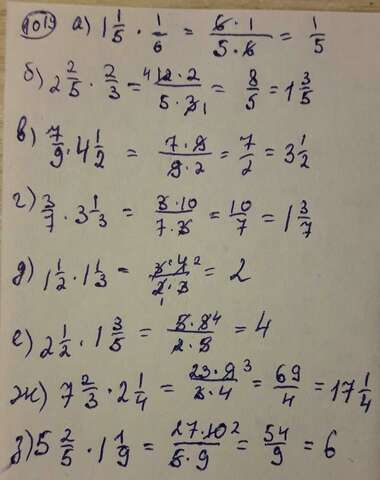 1019 а) 1 1/5 · 1/6 = 6·1/5·6 = 1/5
б) 2 2/5 · 2/3 = 4 12·2/5·3 1 = 8/5 = 1 3/5
в) 7/9 · 4 1/2 = 7·9/9·2 = 7/2 = 3 1/2
г) 3/7 · 3 1/3 = 3·10/7·3 = 10/7 = 1 3/7
д) 1 1/2 · 1 1/3 = 3·4 2/2·3 1 = 2
е) 2 1/2 · 1 3/5 = 5·8 4/2·5 = 4
ж) 7 2/3 · 2 1/4 = 23·9 3/3·4 = 69/4 = 17 1/4
з) 5 2/5 · 1 1/9 = 27·10 2/5·9 = 54/9 = 6